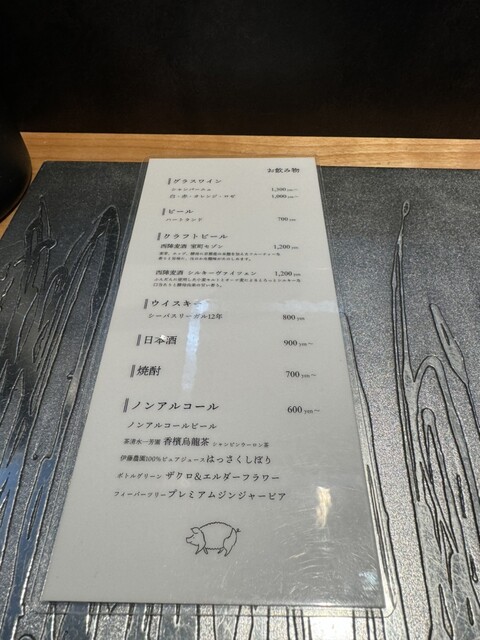 お飲み物
グラスワイン
シャンパーニュ 1,500 yen〜
白・赤・オレンジ・ロゼ 1,000 yen〜
ビール
ハートランド 700 yen
クラフトビール
西陣麦酒 室町セゾン 1,200 yen
西陣麦酒 シルキーヴァイツェン 1,200 yen
ウイスキー
シーバスリーガル12年 800 yen
日本酒 900 yen〜
焼酎 700 yen〜
ノンアルコール 600 yen〜
ノンアルコールビール
茶清水一芳園 香檳烏龍茶 シャンピンウーロン茶
伊藤農園100%ピュアジュース はっさくしぼり
ボトルグリーン ザクロ&エルダーフラワー
フィーバーツリー プレミアムジンジャービア